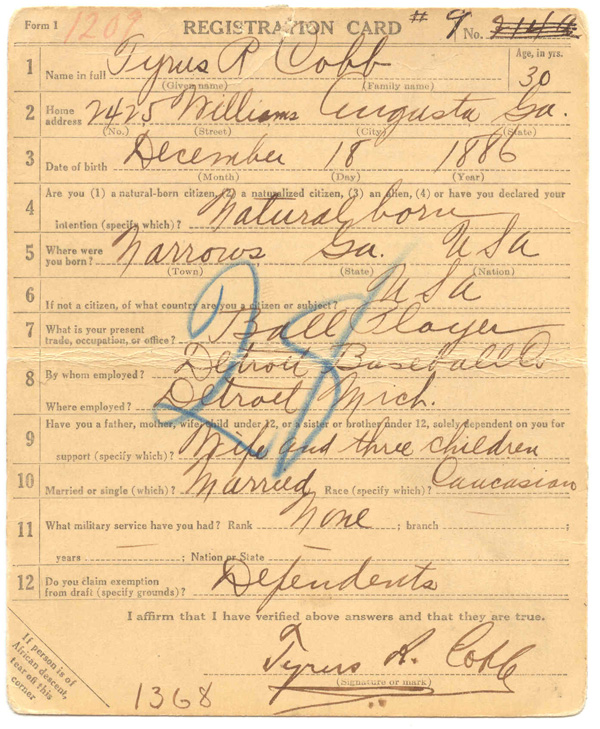 Form 1 1209 REGISTRATION CARD # 9 No.
1 Tyrus R Cobb Age, in yrs.
Name in full (Given name) (Family name) 30
2 Home address 2425 Williams Augusta Ga.
(No.) (Street) (City) (State)
3 Date of birth December 18 1886
(Month) (Day) (Year)
4 Are you (1) a natural-born citizen, (2) a naturalized citizen, (3) an alien, (4) or have you declared your
intention (specify which)? Natural born
5 Where were you born? Narrows Ga. USA
(Town) (State) (Nation)
6 If not a citizen, of what country are you a citizen or subject? USA
7 What is your present trade, occupation, or office? Ball Player
8 By whom employed? Detroit Baseball Co
Where employed? Detroit Mich.
9 Have you a father, mother, wife, child under 12, or a sister or brother under 12, solely dependent on you for
support (specify which)? Wife and three children
10 Married or single (which)? Married Race (specify which)? Caucasian
11 What military service have you had? Rank None ; branch ;
years ; Nation or State
12 Do you claim exemption from draft (specify grounds)? Dependents
28
I affirm that I have verified above answers and that they are true.
Tyrus R. Cobb
(Signature or mark)
If person is of
African descent,
tear off this
corner
1368